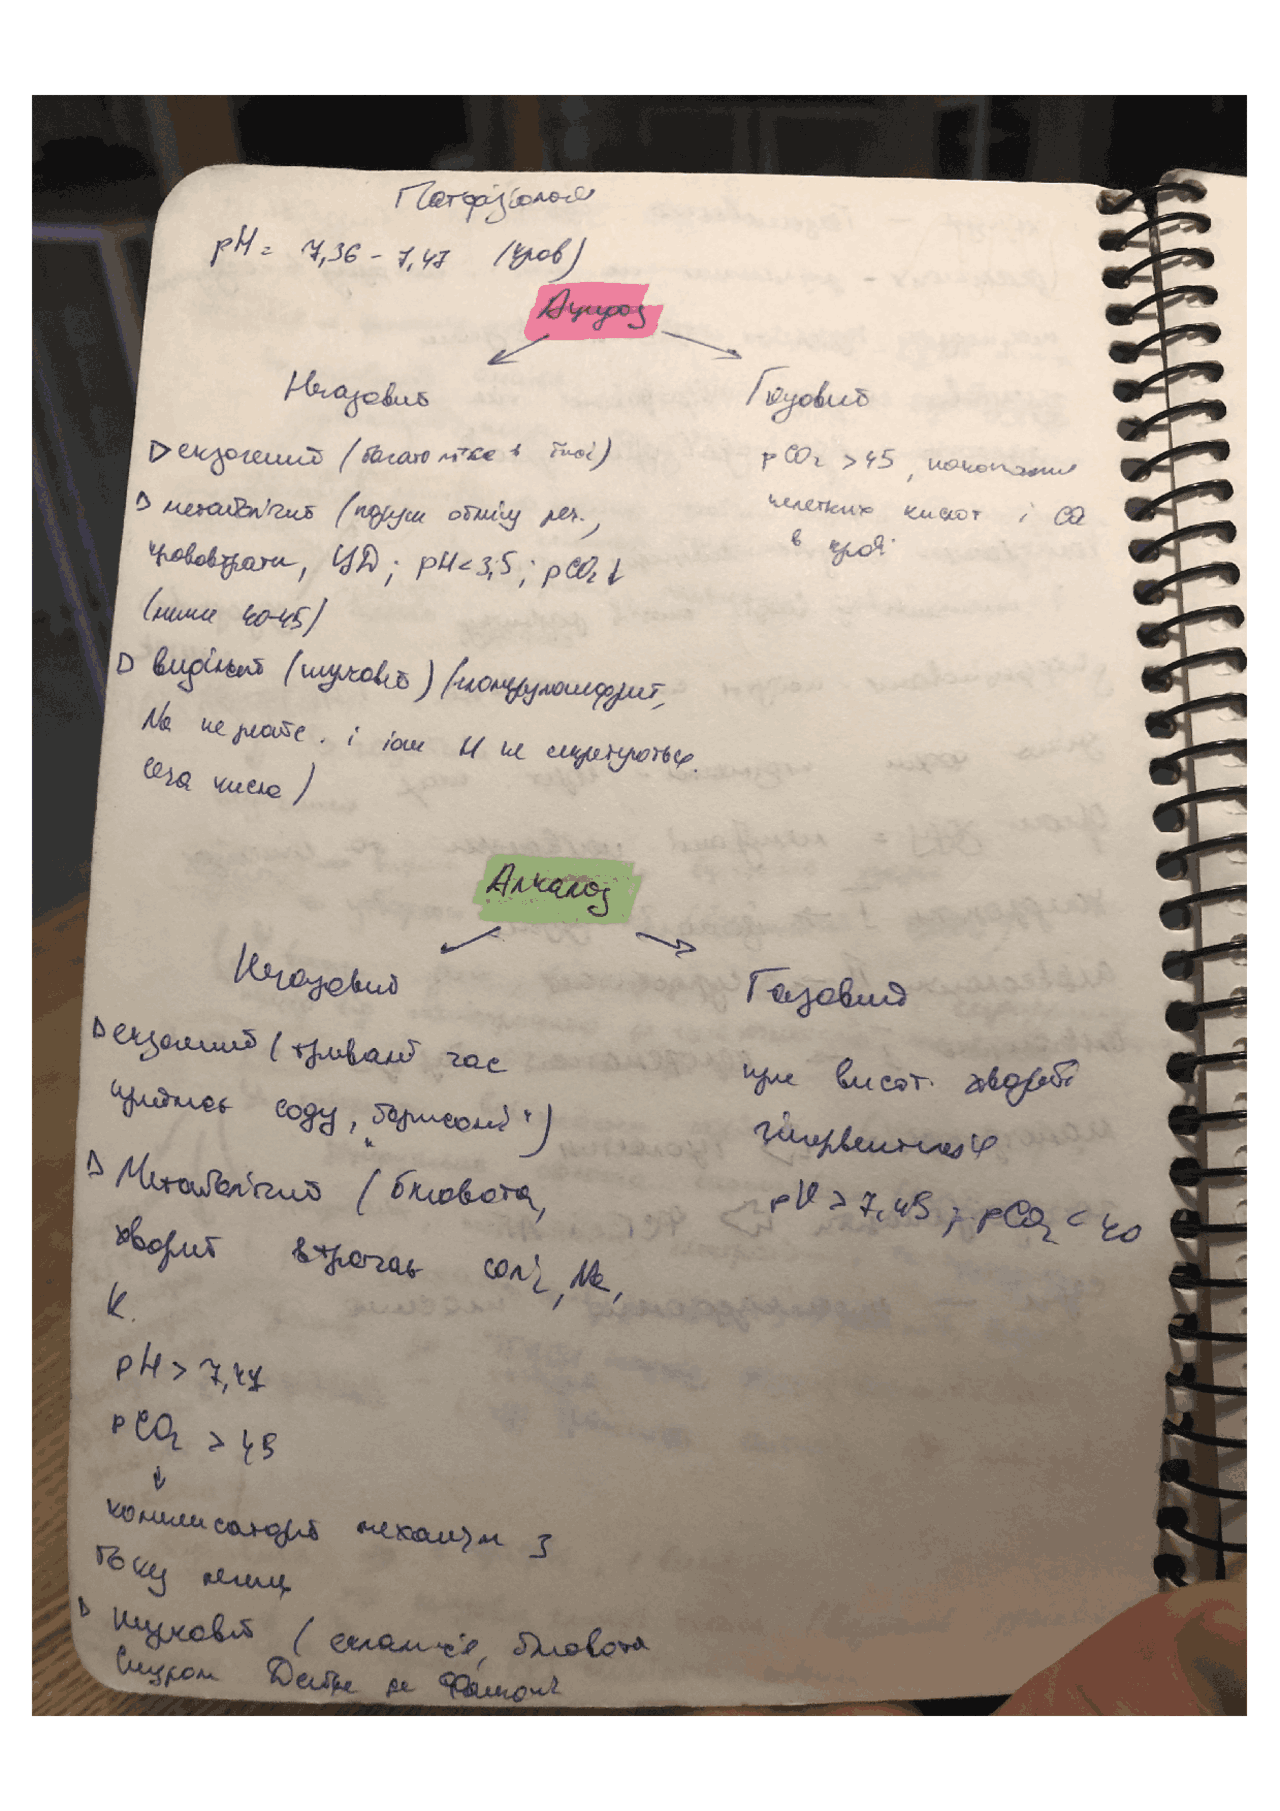 Патфізіологія
pH = 7,36 - 7,47 (кров)
Ацидоз
Негазовий
Газовий
екзогенний (багато м'яса в їжі)
pCO2 >45, накопичення
метаболічний (поруш обміну реч.,
нелетких кислот і CO2
крововтрати, ЦД; pH<3,5; pCO2↓
в крові
(нижче 40-45)
видільний (нирковий) (гломерулонефрит,
Na не реабс. і іони H не секретуються.
сеча кисла)
Алкалоз
Негазовий
Газовий
екзогенний (тривалий час
при висот. хворобі
приймає соду, "боржомі")
гіпервентиляція
Метаболічний (блювота,
pH > 7,45; pCO2 < 40
хворий втрачає солі, Na,
K.
pH > 7,47
pCO2 > 45
↓
компенсаторний механізм з
боку легень
нирковий (еклампсія, блювота
Синдром Дебре де Фанконі